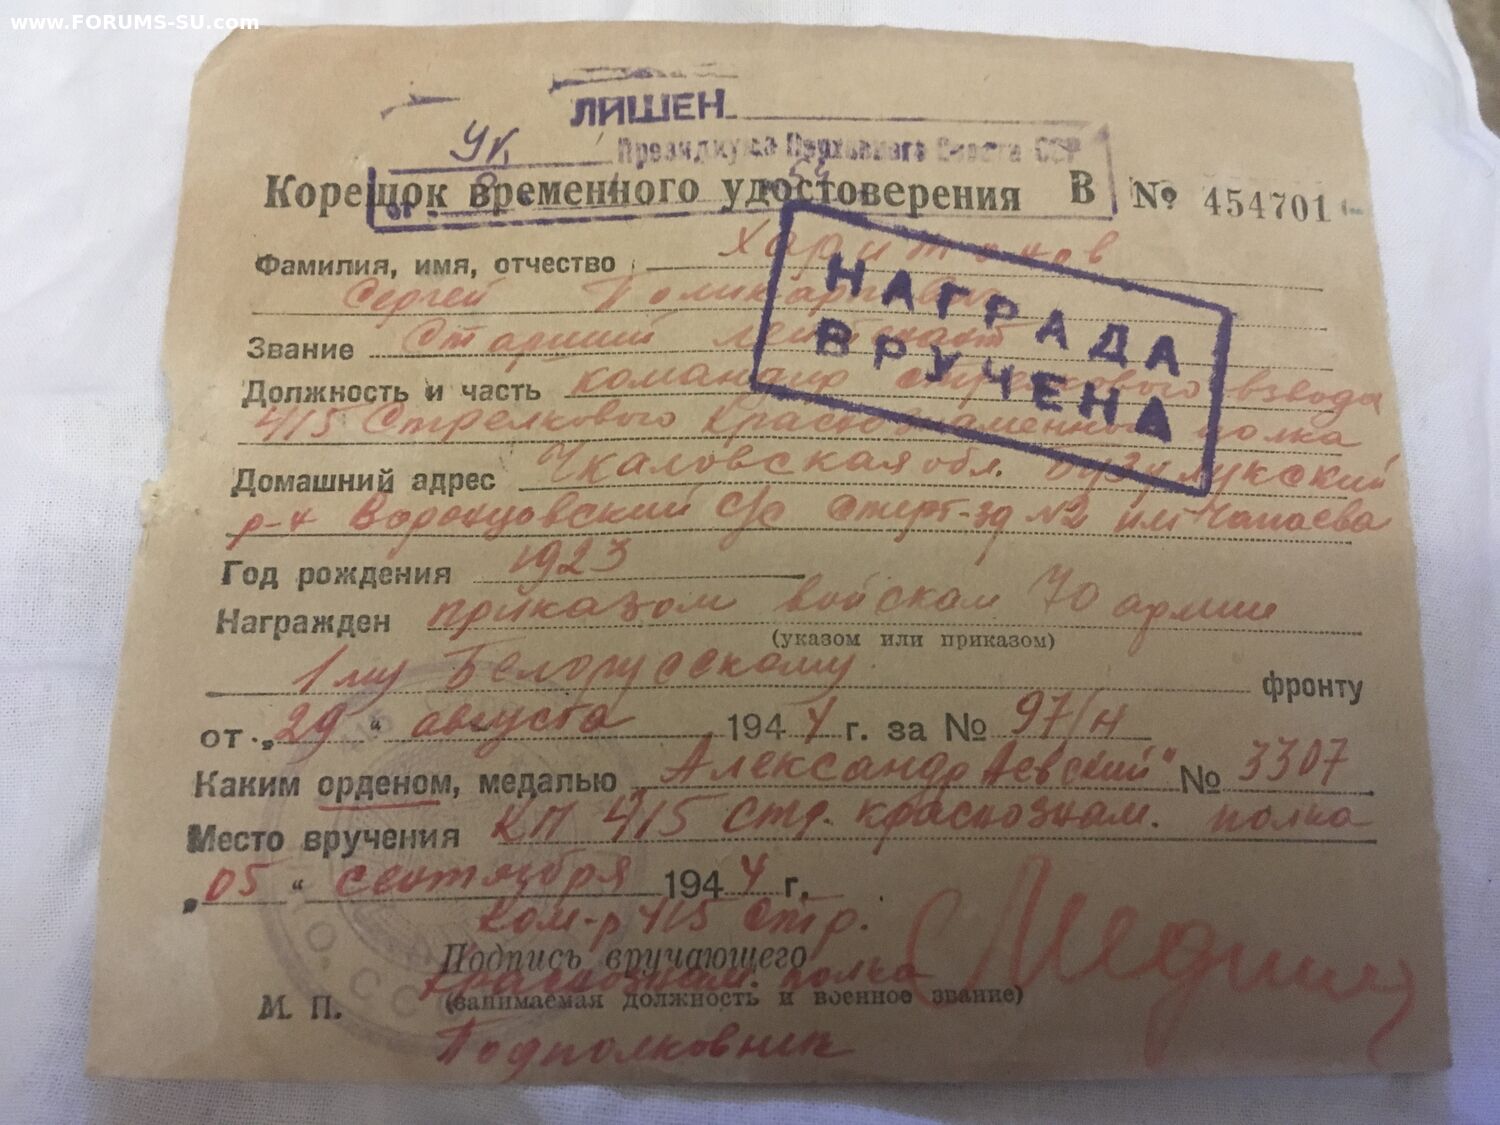 www.FORUMS-SU.com
ЛИШЕН
Ук.
Президиума Верховного Совета ССР
от
Корешок временного удостоверения В № 454701
Фамилия, имя, отчество Харитонов
Сергей Поликарпович
НАГРАДА
ВРУЧЕНА
Звание Старший лейтенант
Должность и часть командир стрелкового взвода
415 Стрелкового Краснознаменного полка
Домашний адрес Чкаловская обл. Бузулукский
р-н Воронцовский с/с им Чапаева
Год рождения 1923
Награжден приказом войскам 70 армии
(указом или приказом)
1му Белорусскому фронту
от „29" августа 1944 г. за № 97/н
Каким орденом, медалью Александр Невский" № 3307
Место вручения КП 415 Стр. краснознам. полка
„05" сентября 1944 г.
Ком-р 415 Стр.
Подпись вручающего
краснознам. полка
М. П. (занимаемая должность и военное звание)
Подполковник